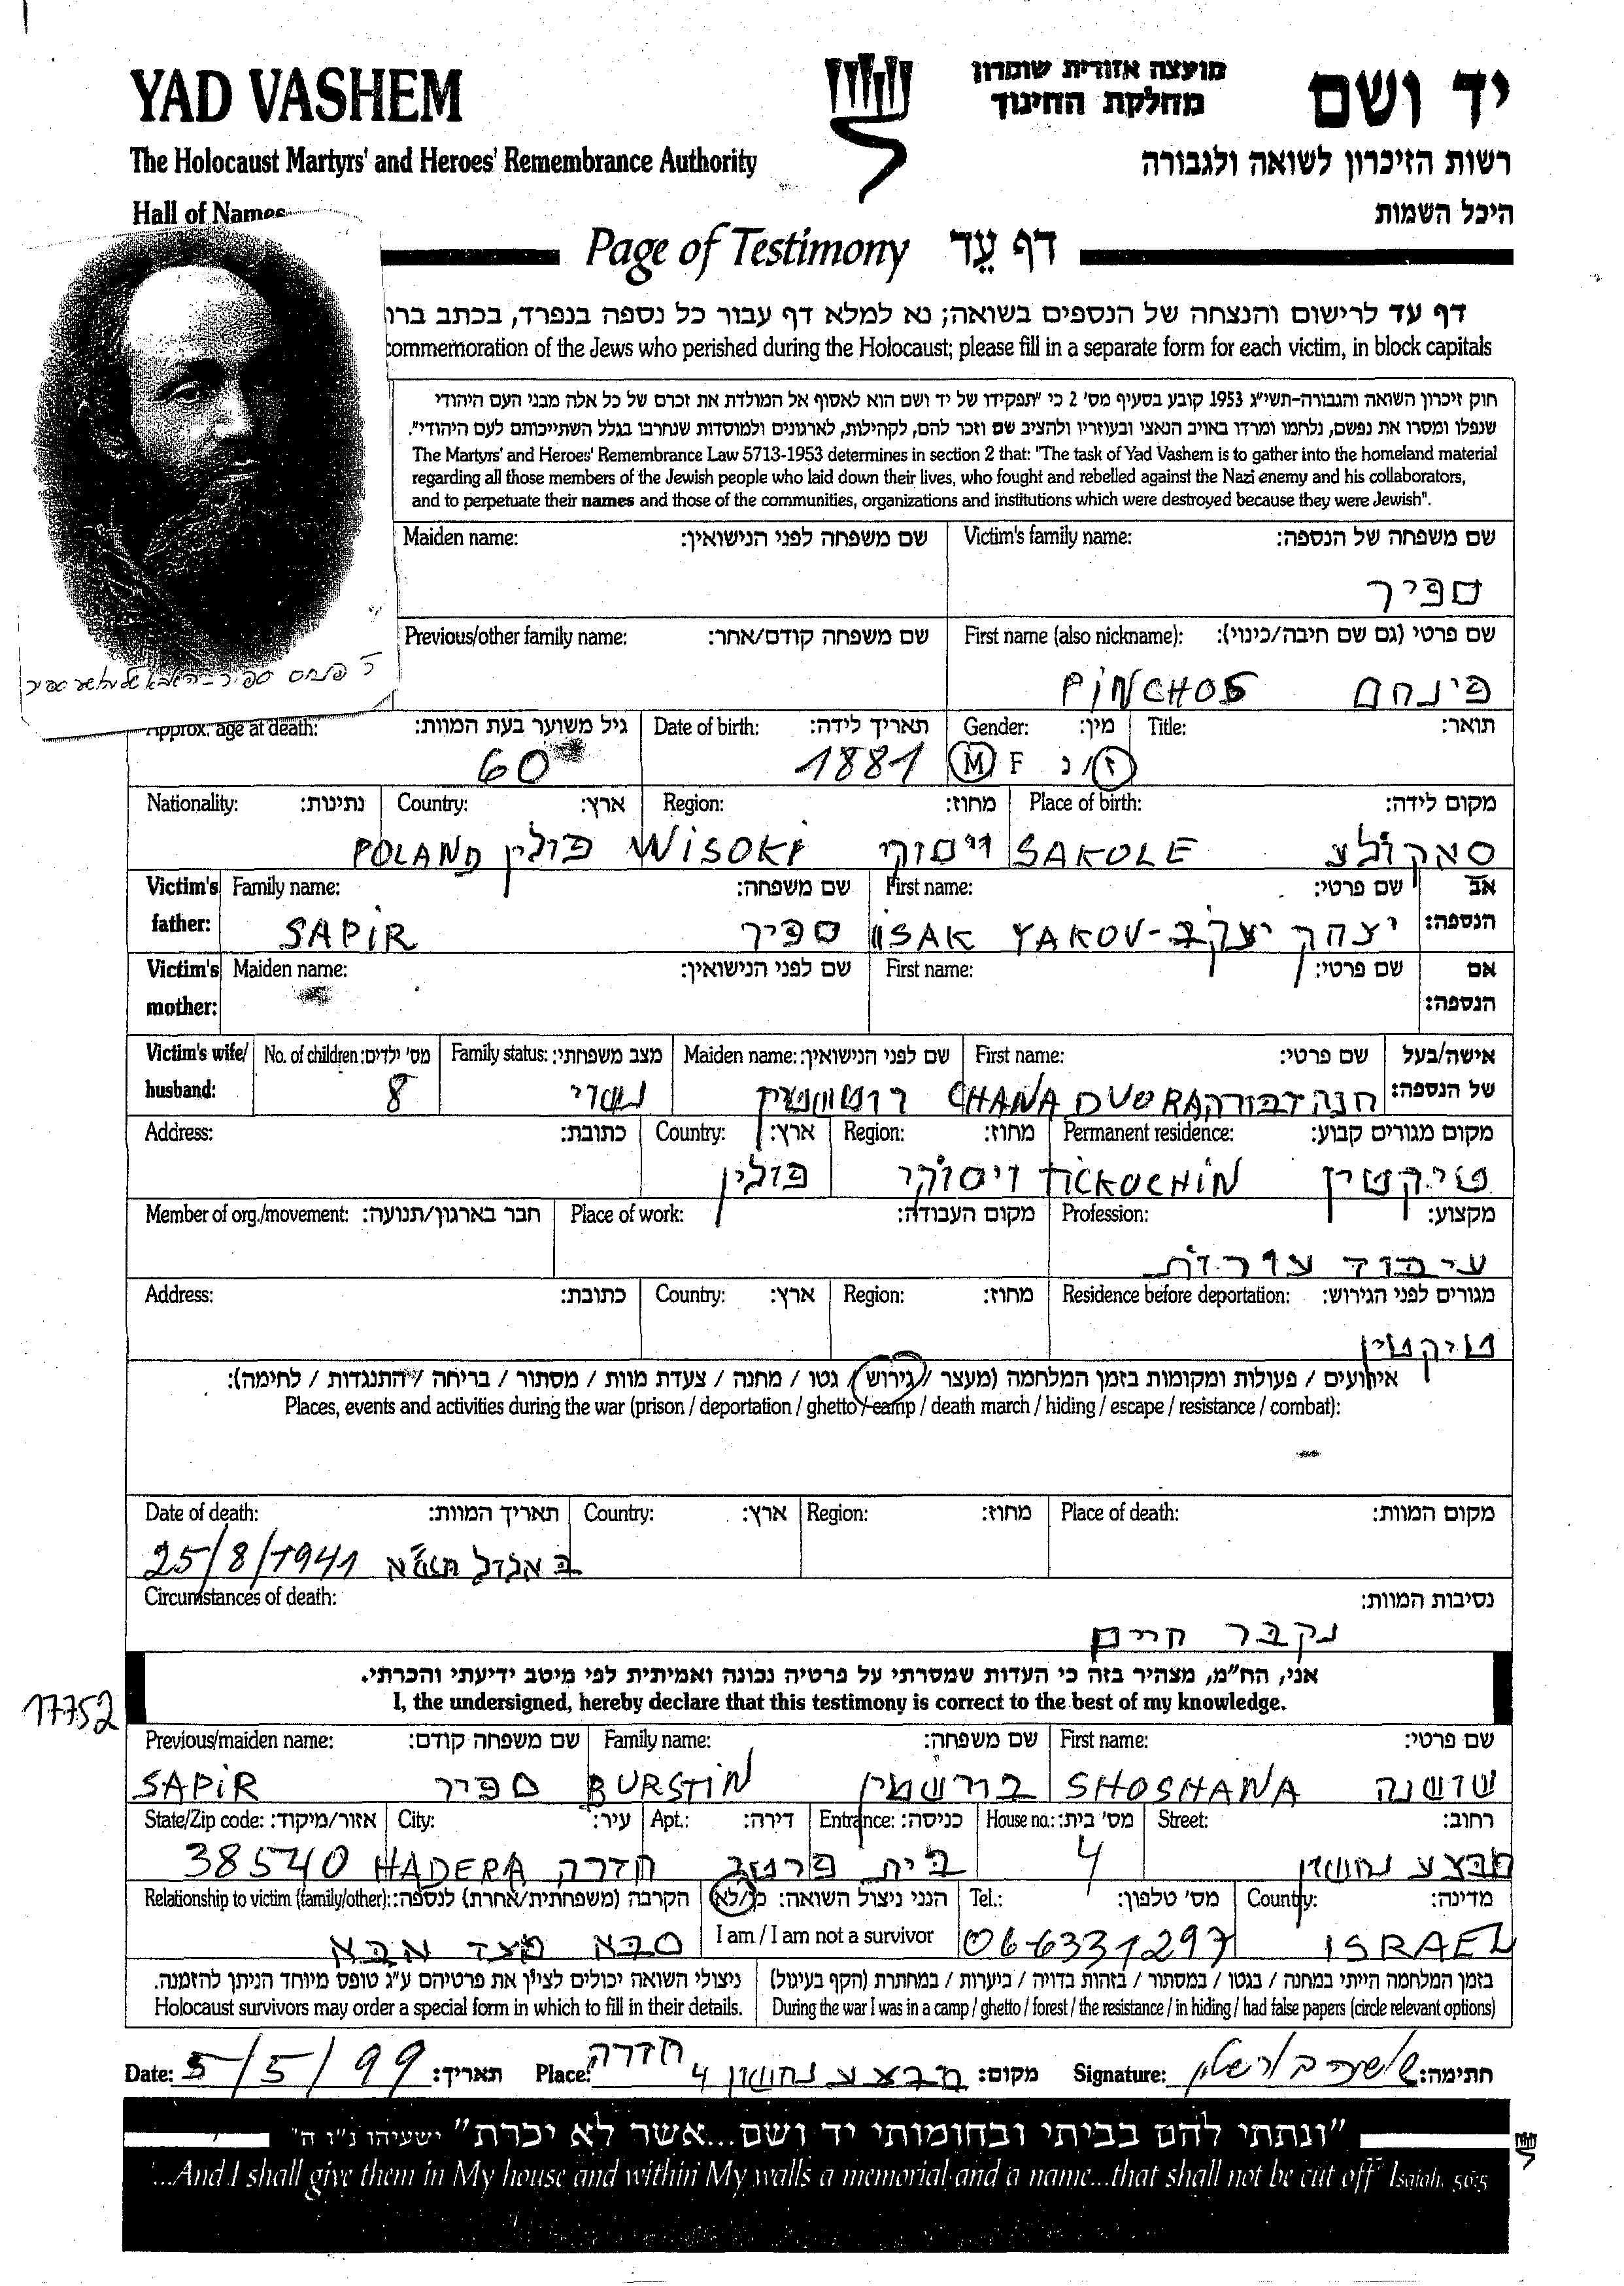 YAD VASHEM
מועצה אזורית שומרון
מחלקת החינוך
יד ושם
The Holocaust Martyrs' and Heroes' Remembrance Authority
רשות הזיכרון לשואה ולגבורה
Hall of Names
היכל השמות
Page of Testimony דף עֵד
דף עד לרישום והנצחה של הנספים בשואה; נא למלא דף עבור כל נספה בנפרד, בכתב ברו
commemoration of the Jews who perished during the Holocaust; please fill in a separate form for each victim, in block capitals
חוק זיכרון השואה והגבורה-תשי"ג 1953 קובע בסעיף מס' 2 כי "תפקידו של יד ושם הוא לאסוף אל המולדת את זכרם של כל אלה מבני העם היהודי
שנפלו ומסרו את נפשם, נלחמו ומרדו באויב הנאצי ובעוזריו ולהציב שם וזכר להם, לקהילות, לארגונים ולמוסדות שנחרבו בגלל השתייכותם לעם היהודי".
The Martyrs' and Heroes' Remembrance Law 5713-1953 determines in section 2 that: "The task of Yad Vashem is to gather into the homeland material
regarding all those members of the Jewish people who laid down their lives, who fought and rebelled against the Nazi enemy and his collaborators,
and to perpetuate their names and those of the communities, organizations and institutions which were destroyed because they were Jewish".
Maiden name: שם משפחה לפני הנישואין: Victim's family name: שם משפחה של הנספה:
ספיר
Previous/other family name: שם משפחה קודם/אחר: First name (also nickname): שם פרטי (גם שם חיבה/כינוי):
PINCHOS פינחס
ר' פנחס ספיר
Approx. age at death: גיל משוער בעת המוות: Date of birth: תאריך לידה: Gender: מין: Title: תואר:
60 1881 M F ז/נ
Nationality: נתינות: Country: ארץ: Region: מחוז: Place of birth: מקום לידה:
POLAND פולין WISOKI ויסוקי SAKOLE סאקולע
Victim's father: Family name: שם משפחה: First name: שם פרטי: אב הנספה:
SAPIR ספיר ISAK YAKOV יצחק יעקב
Victim's mother: Maiden name: שם לפני הנישואין: First name: שם פרטי: אם הנספה:
Victim's wife/ husband: No. of children: מס' ילדים: Family status: מצב משפחתי: Maiden name: שם לפני הנישואין: First name: שם פרטי: אישה/בעל של הנספה:
8 נשוי רוטשטיין CHANA DVORA חנה דבורה
Address: כתובת: Country: ארץ: Region: מחוז: Permanent residence: מקום מגורים קבוע:
פולין ויסוקי TICKOCHIN טיקטין
Member of org./movement: חבר בארגון/תנועה: Place of work: מקום העבודה: Profession: מקצוע:
עיבוד עורות
Address: כתובת: Country: ארץ: Region: מחוז: Residence before deportation: מגורים לפני הגירוש:
טיקטין
אירועים / פעולות ומקומות בזמן המלחמה (מעצר / גירוש / גטו / מחנה / צעדת מוות / מסתור / בריחה / התנגדות / לחימה):
Places, events and activities during the war (prison / deportation / ghetto / camp / death march / hiding / escape / resistance / combat):
Date of death: תאריך המוות: Country: ארץ: Region: מחוז: Place of death: מקום המוות:
25/8/1941 ב אלול תש"א
Circumstances of death: נסיבות המוות:
נקבר חיים
אני, הח"מ, מצהיר בזה כי העדות שמסרתי על פרטיה נכונה ואמיתית לפי מיטב ידיעתי והכרתי.
I, the undersigned, hereby declare that this testimony is correct to the best of my knowledge.
17752
Previous/maiden name: שם משפחה קודם: Family name: שם משפחה: First name: שם פרטי:
SAPIR ספיר BURSTIN בורשטין SHOSHANA שושנה
State/Zip code: אזור/מיקוד: City: עיר: Apt.: דירה: Entrance: כניסה: House no.: מס' בית: Street: רחוב:
38540 HADERA חדרה בית פרטי 4 מבצע נחשון
Relationship to victim (family/other): הקרבה (משפחתית/אחרת) לנספה: הנני ניצול השואה: כן/לא Tel.: מס' טלפון: Country: מדינה:
סבא מצד אבא I am / I am not a survivor 06-6331297 ISRAEL
ניצולי השואה יכולים לציין את פרטיהם ע"ג טופס מיוחד הניתן להזמנה. בזמן המלחמה הייתי במחנה / בגטו / במסתור / בזהות בדויה / ביערות / במחתרת (הקף בעיגול)
Holocaust survivors may order a special form in which to fill in their details. During the war I was in a camp / ghetto / forest / the resistance / in hiding / had false papers (circle relevant options)
Date: 5/5/99 תאריך: Place: חדרה מבצע נחשון 4 מקום: Signature: שושנה בורשטין חתימה:
"ונתתי להם בביתי ובחומותי יד ושם...אשר לא יכרת" ישעיהו נ"ו ה'
'...And I shall give them in My house and within My walls a memorial and a name...that shall not be cut off' Isaiah, 56:5